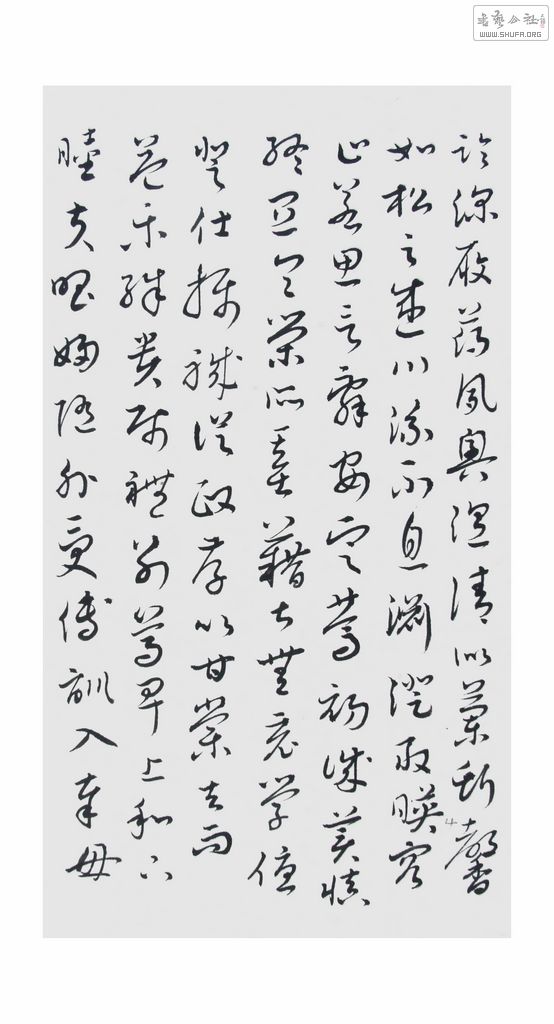 书艺公社
WWW.SHUFA.ORG
臨深履薄夙興溫清似蘭斯馨
如松之盛川流不息淵澄取映容
止若思言辭安定篤初誠美慎
終宜令榮所基籍甚無竟學優
登仕攝職從政存以甘棠去而
益樂殊貴賤禮別尊卑上和下
睦夫唱婦隨外受傅訓入奉母